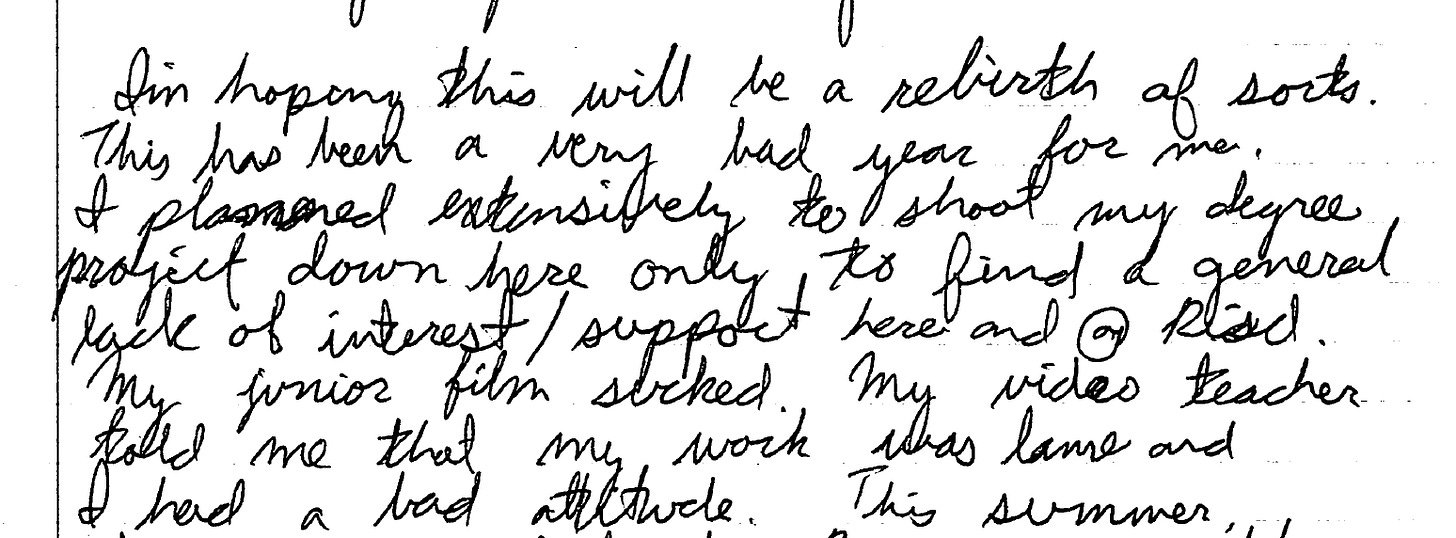 I'm hoping this will be a rebirth of sorts.
This has been a very bad year for me.
I planned extensively to shoot my degree
project down here only to find a general
lack of interest/support here and @ Risd.
My junior film sucked. My video teacher
told me that my work was lame and
I had a bad attitude. This summer,